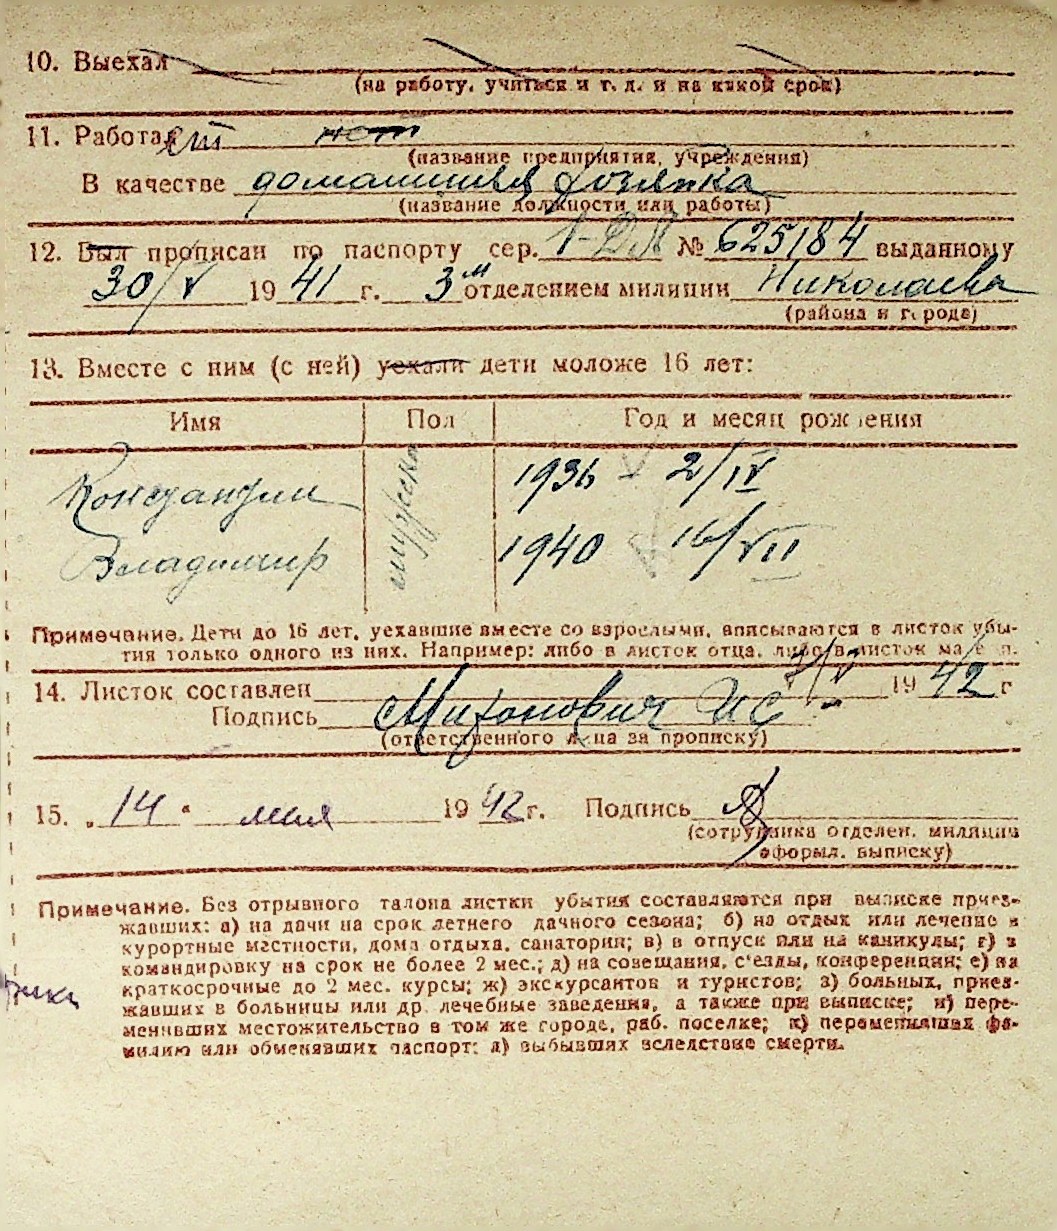 10. Выехал
(на работу, учиться и т. д. и на какой срок)
11. Работает нет
(название предприятия, учреждения)
В качестве домашняя хозяйка
(название должности или работы)
12. Был прописан по паспорту сер. № 625184 выданному
30/V 1941 г. 3м отделением милиции Николаева
(района и города)
13. Вместе с ним (с ней) уехали дети моложе 16 лет:
Имя Пол Год и месяц рождения
Константин мужска 1936 2/IV
Владимир 1940 16/VII
Примечание. Дети до 16 лет, уехавшие вместе со взрослыми, вписываются в листок убы-
тия только одного из них. Например: либо в листок отца, либо в листок матери.
14. Листок составлен 1942 г
Подпись
(ответственного лица за прописку)
15. „14" мая 1942 г. Подпись
(сотрудника отделен. милиции
оформл. выписку)
Примечание. Без отрывного талона листки убытия составляются при выписке приез-
жавших: а) на дачи на срок летнего дачного сезона; б) на отдых или лечение в
курортные местности, дома отдыха, санатории; в) в отпуск или на каникулы; г) в
командировку на срок не более 2 мес.; д) на совещания, с'езды, конференции; е) на
краткосрочные до 2 мес. курсы; ж) экскурсантов и туристов; з) больных, приез-
жавших в больницы или др. лечебные заведения, а также при выписке; и) пере-
менивших местожительство в том же городе, раб. поселке; к) переменивших фа-
милию или обменявших паспорт; л) выбывших вследствие смерти.